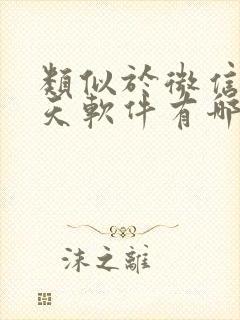 類似於微信
天軟件有哪
沫之離